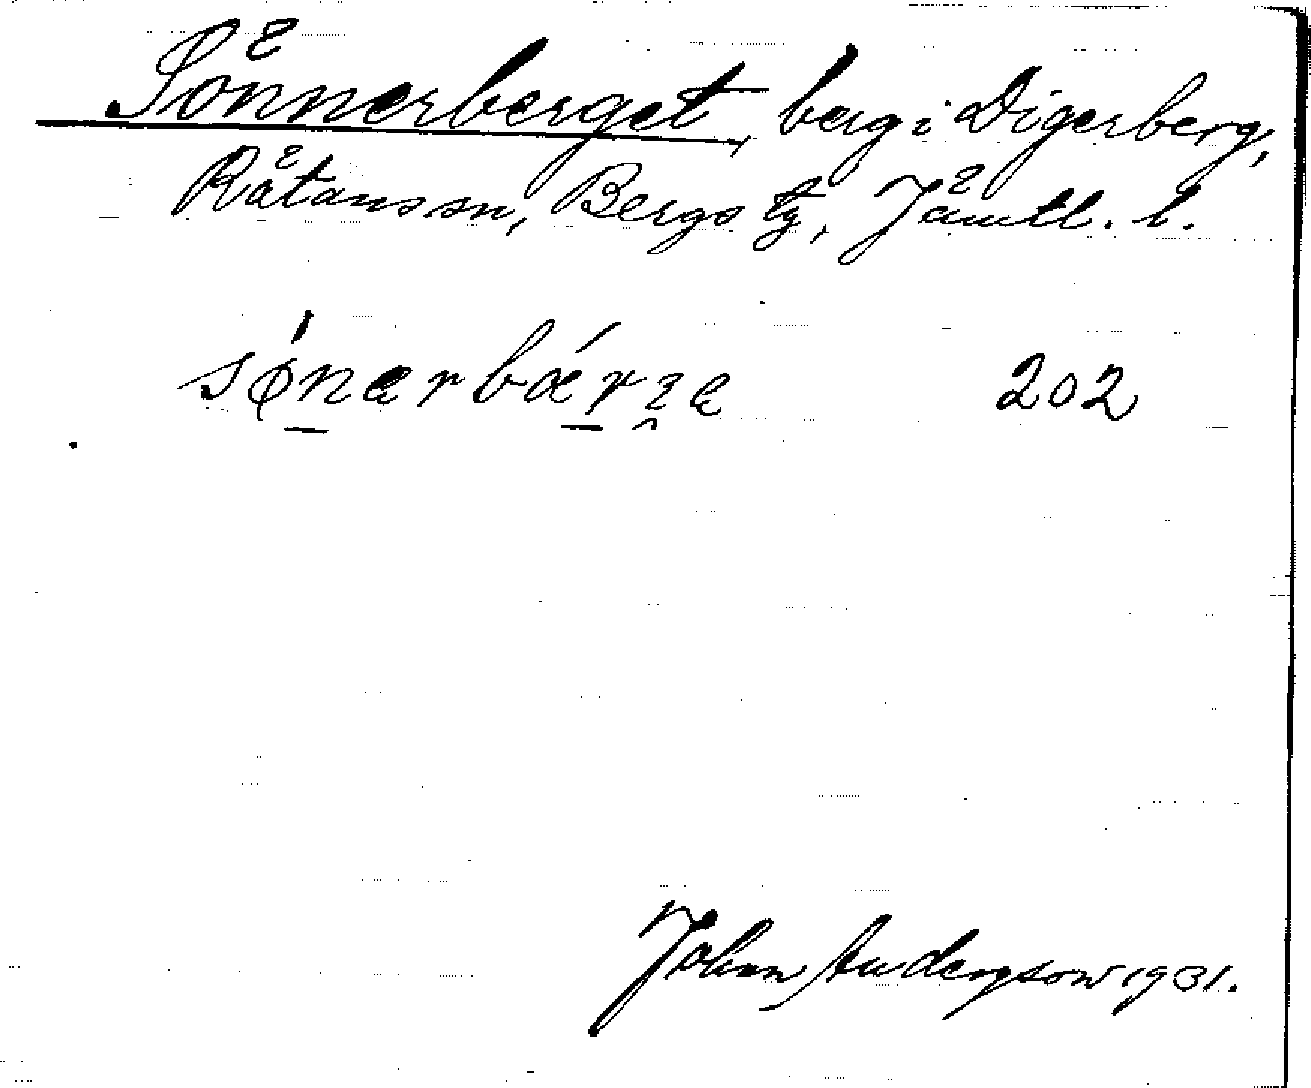 Sönnerberget, berg i Digerberg,
Råtans sn, Bergs tg, Jämtl. l.
sǿnarbǽrʒa 202
Johan Anderson 1931.